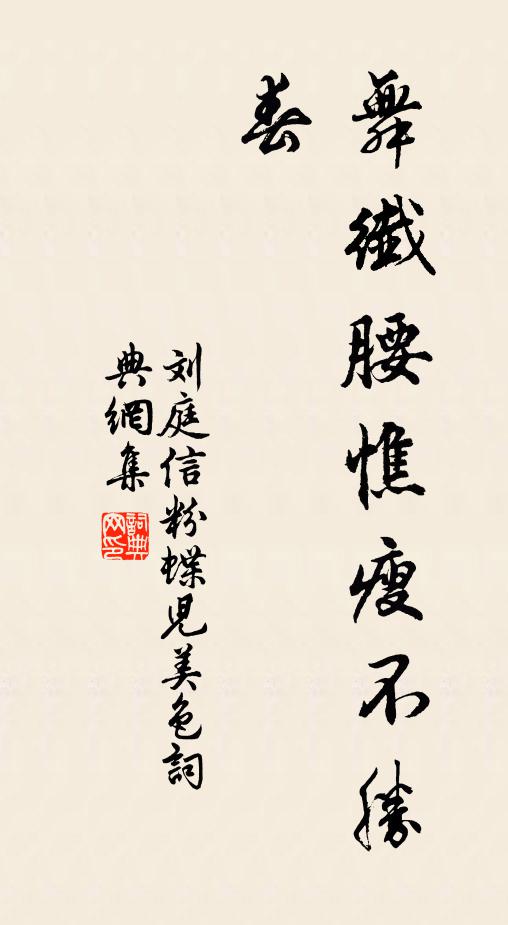 舞纖腰憔瘦不勝
春
刘庭信粉蝶児美色詞
典網集
詞典
网印